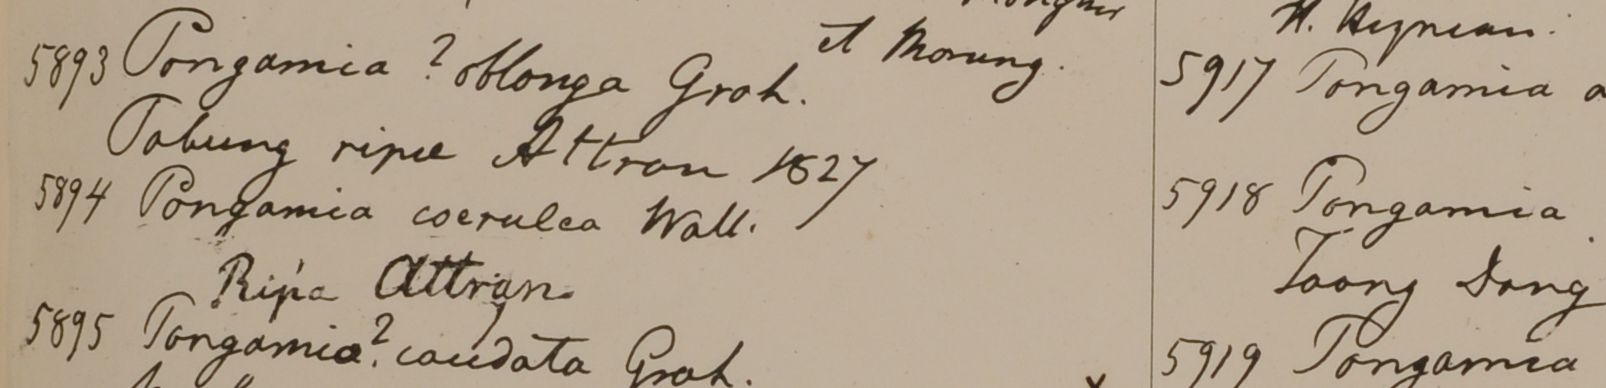 et Morung.
5893 Pongamia ? oblonga Grah.
Tabung ripæ Attran 1827
5894 Pongamia coerulea Wall.
Ripa Attran
5895 Pongamia ? caudata Grah.
H. Heynean.
5917 Pongamia
5918 Pongamia
Toong Dong
5919 Pongamia